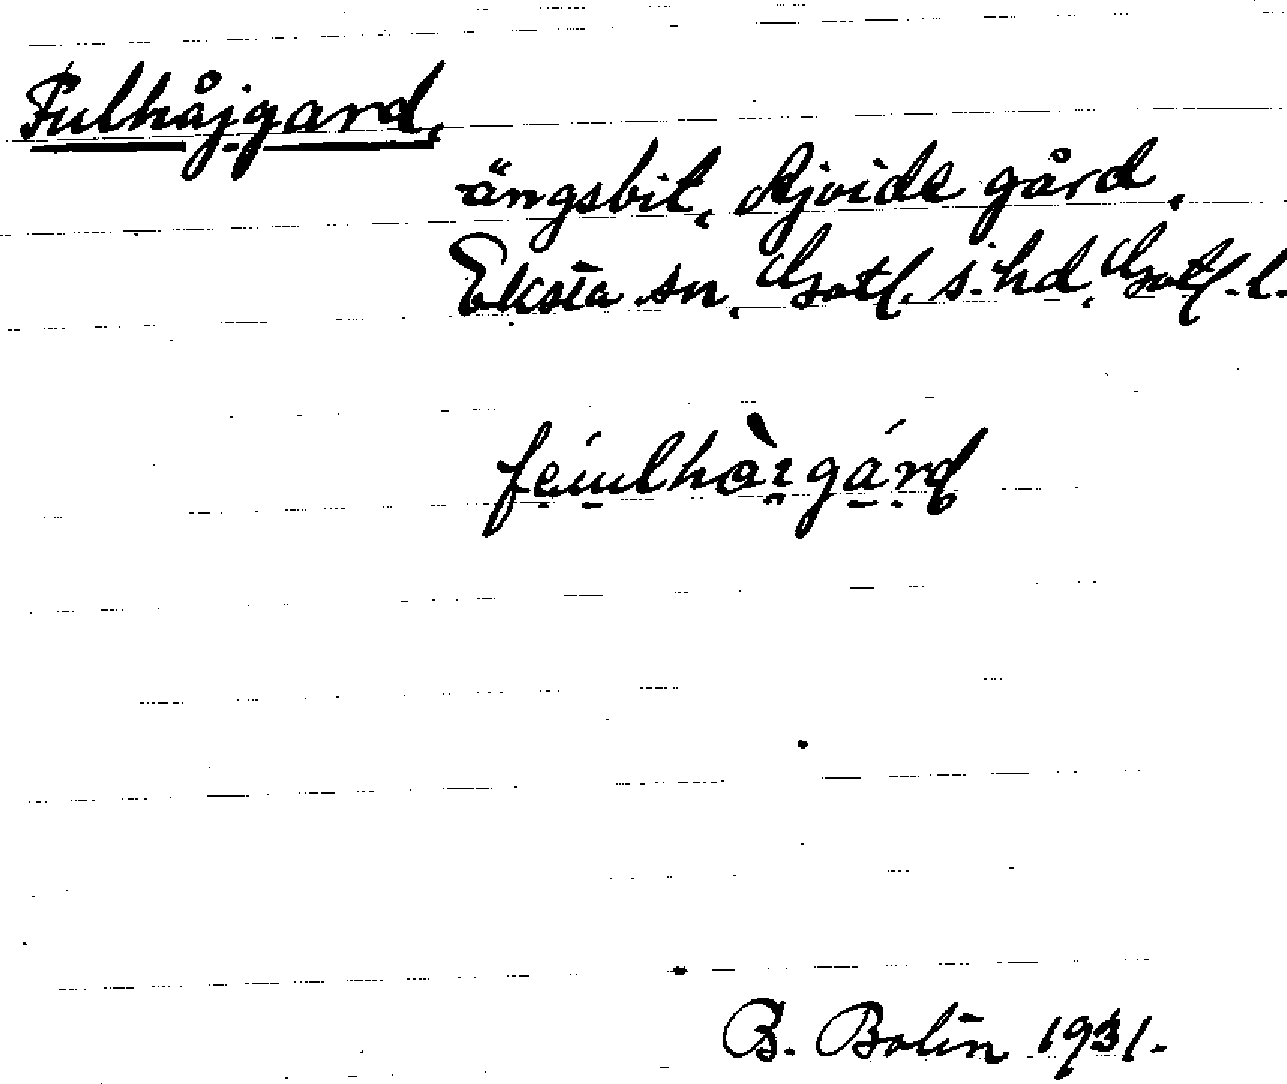 Fulhåjgard,
ängsbit, Ajvide gård,
Eksta sn, Gotl. s. hd, Gotl. l.
B. Bolin 1931.